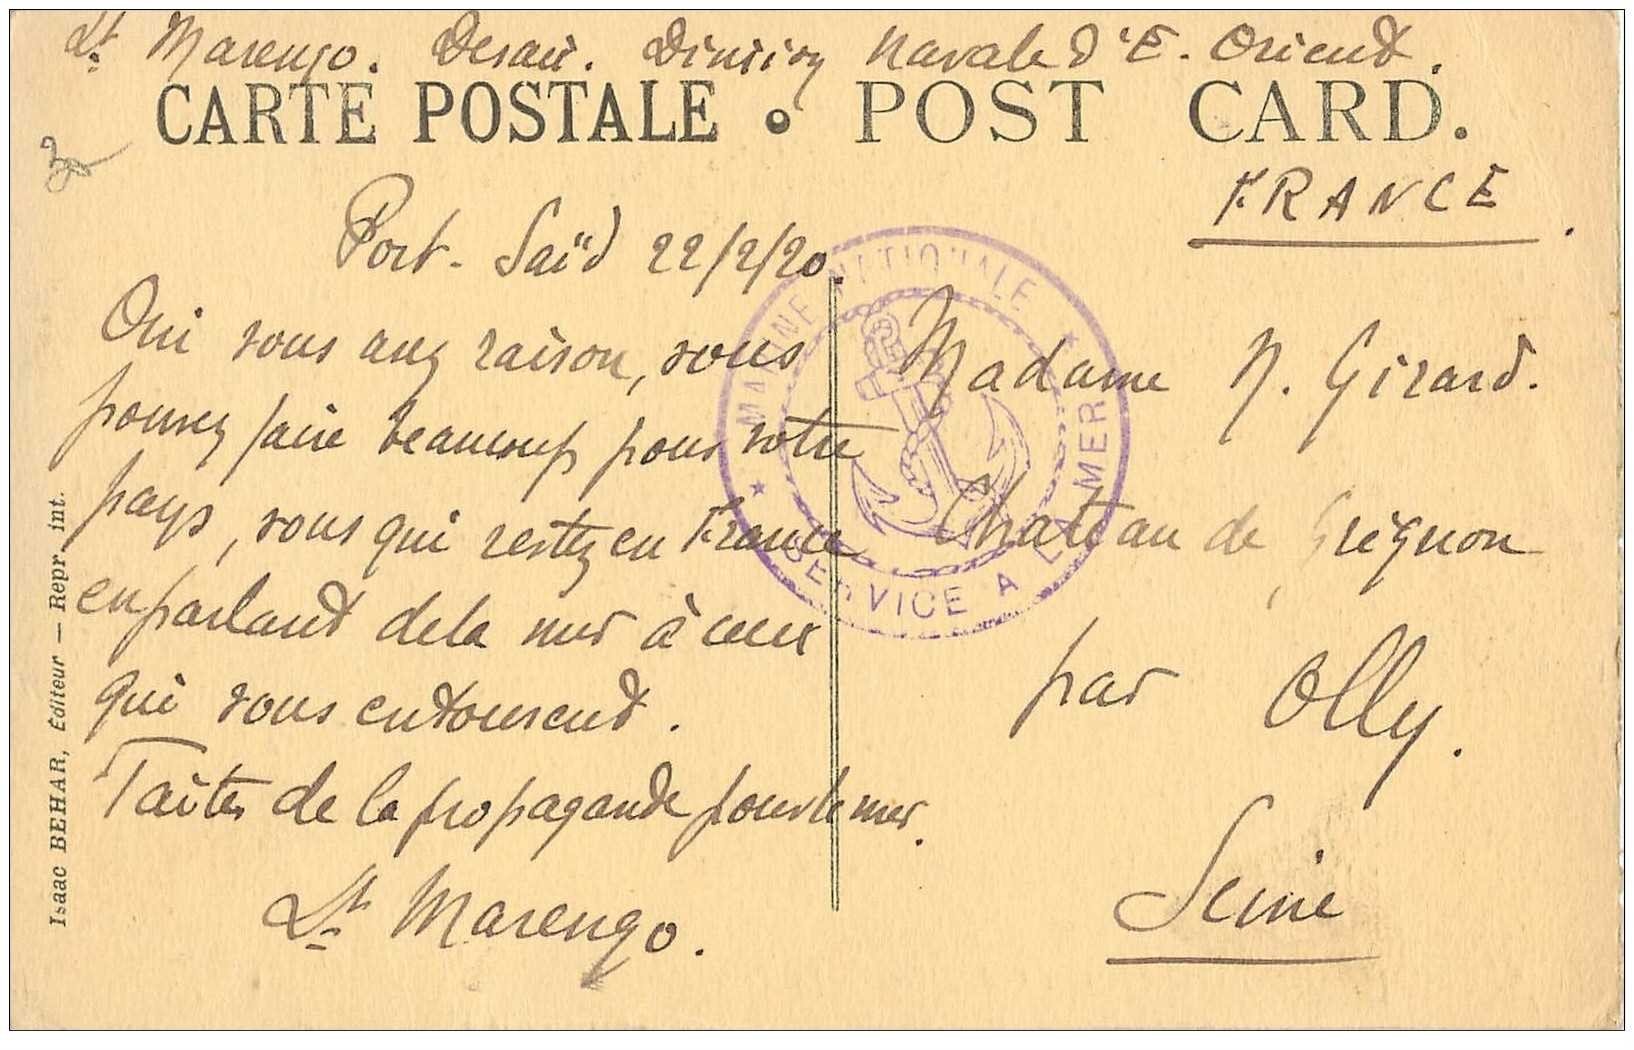 Lt. Marengo. Desaix. Division Navale d'E. Orient.
CARTE POSTALE • POST CARD.
FRANCE.
Port-Saïd 22/2/20.
Oui vous avez raison, vous
pouvez faire beaucoup pour votre
pays, vous qui restez en France
en parlant de la mer à ceux
qui vous entourent.
Faites de la propagande pour la mer.
Lt. Marengo.
Madame N. Girard.
Chateau de Grignon
par Olly.
Seine
★ MARINE NATIONALE ★
SERVICE A LA MER
Isaac BEHAR, Éditeur — Repr. int.